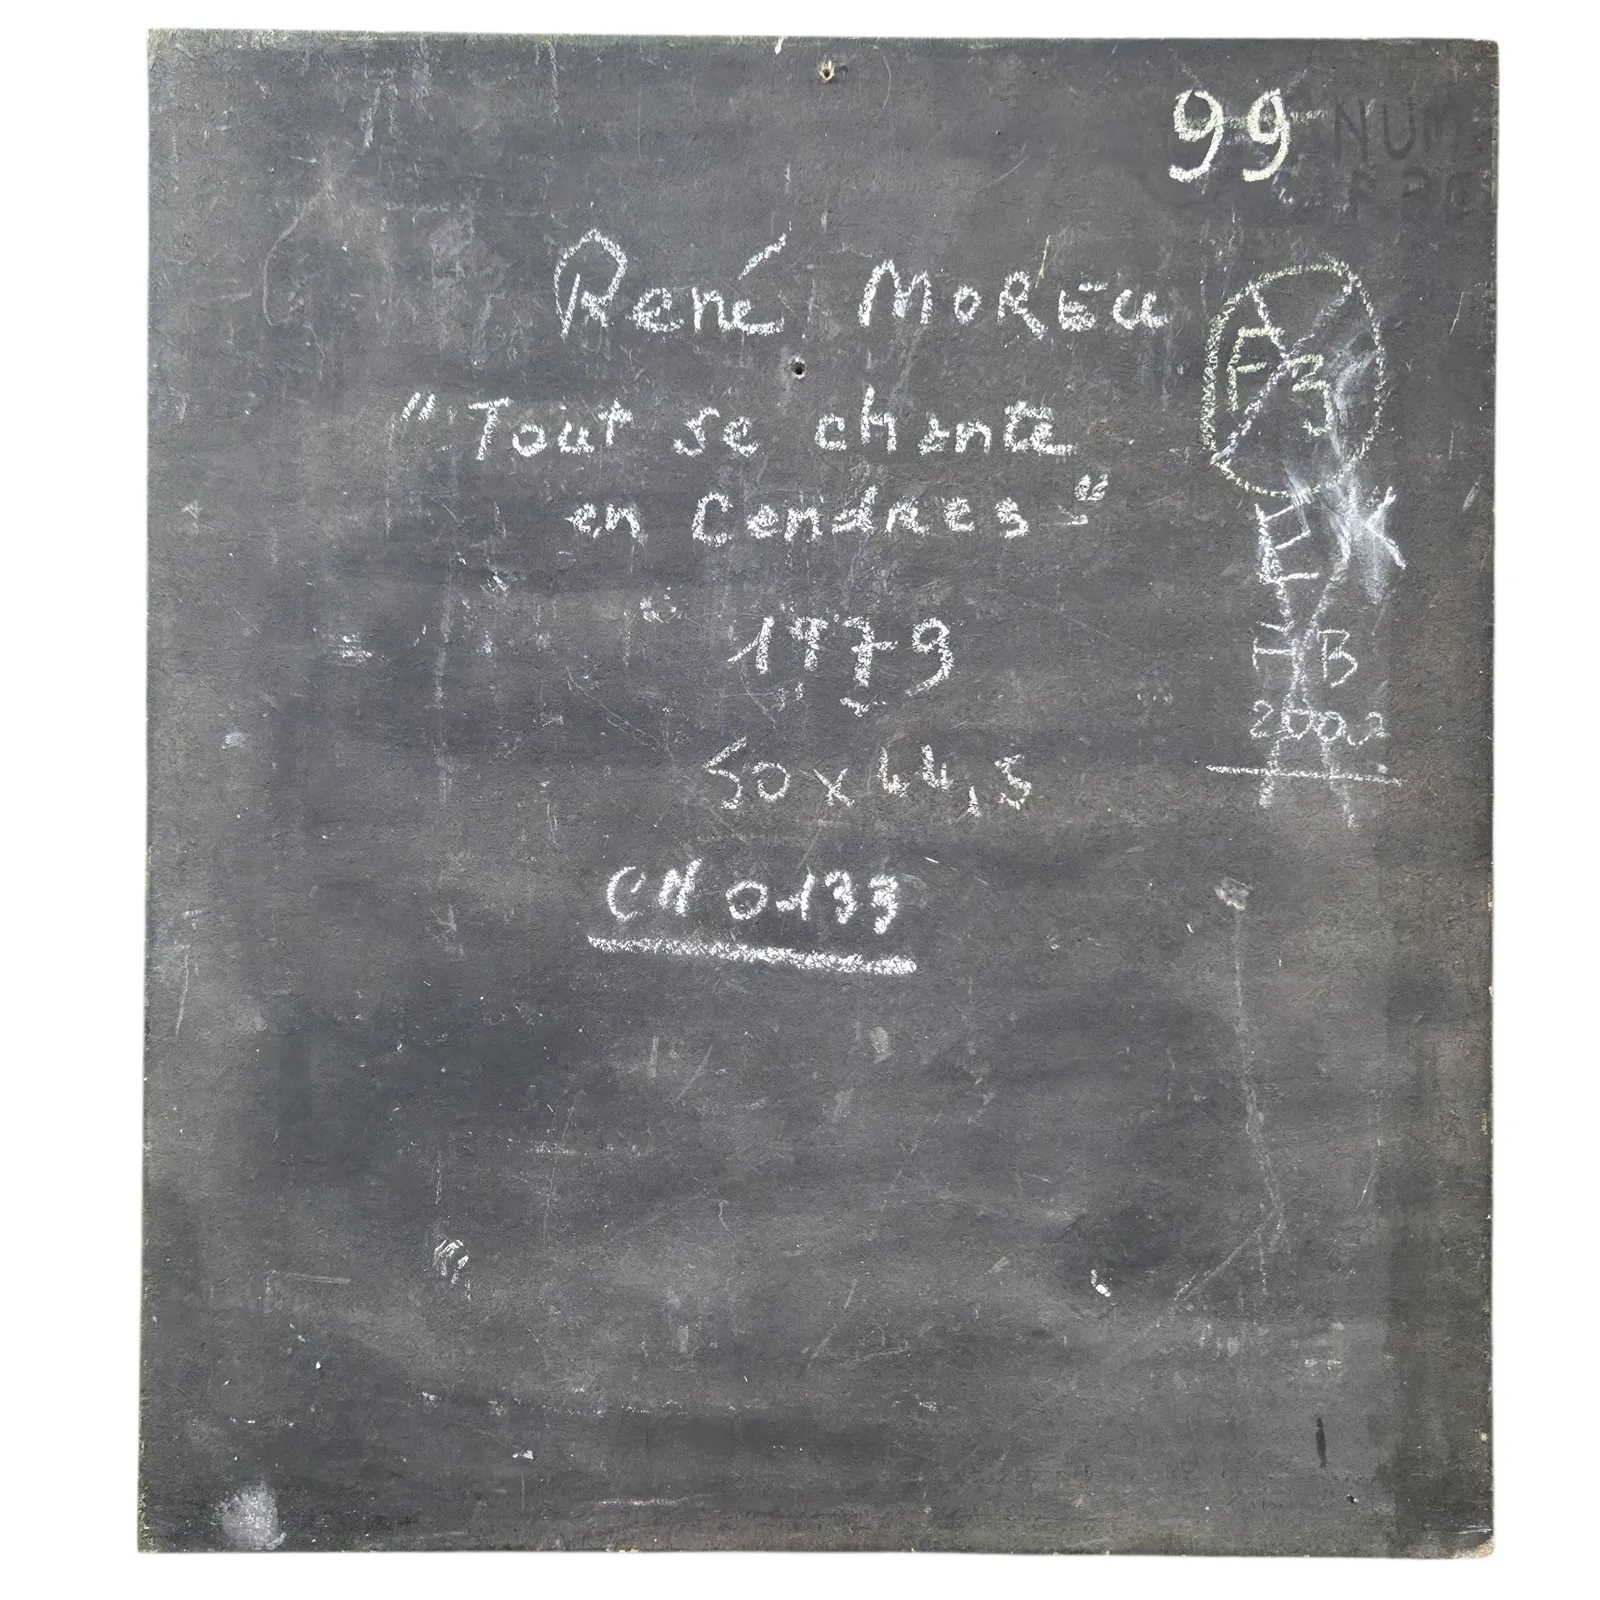 99 NUM
René MORÉU
"Tout se chante
en Cendres"
1979
50 x 44,5
CN 0133
F3
HB
2002